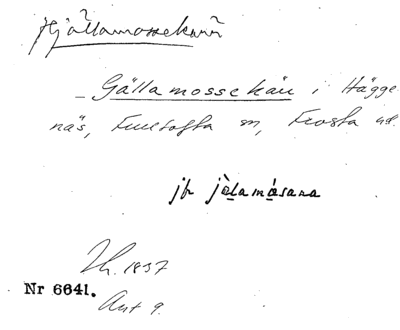 Hjällamossekärr
– Gällamossekäu i Hägge-
näs, Fulltofta sn, Frosta hd.
jfr jælamåsana
Th. 1837
Nr 6641.
Ant 9.